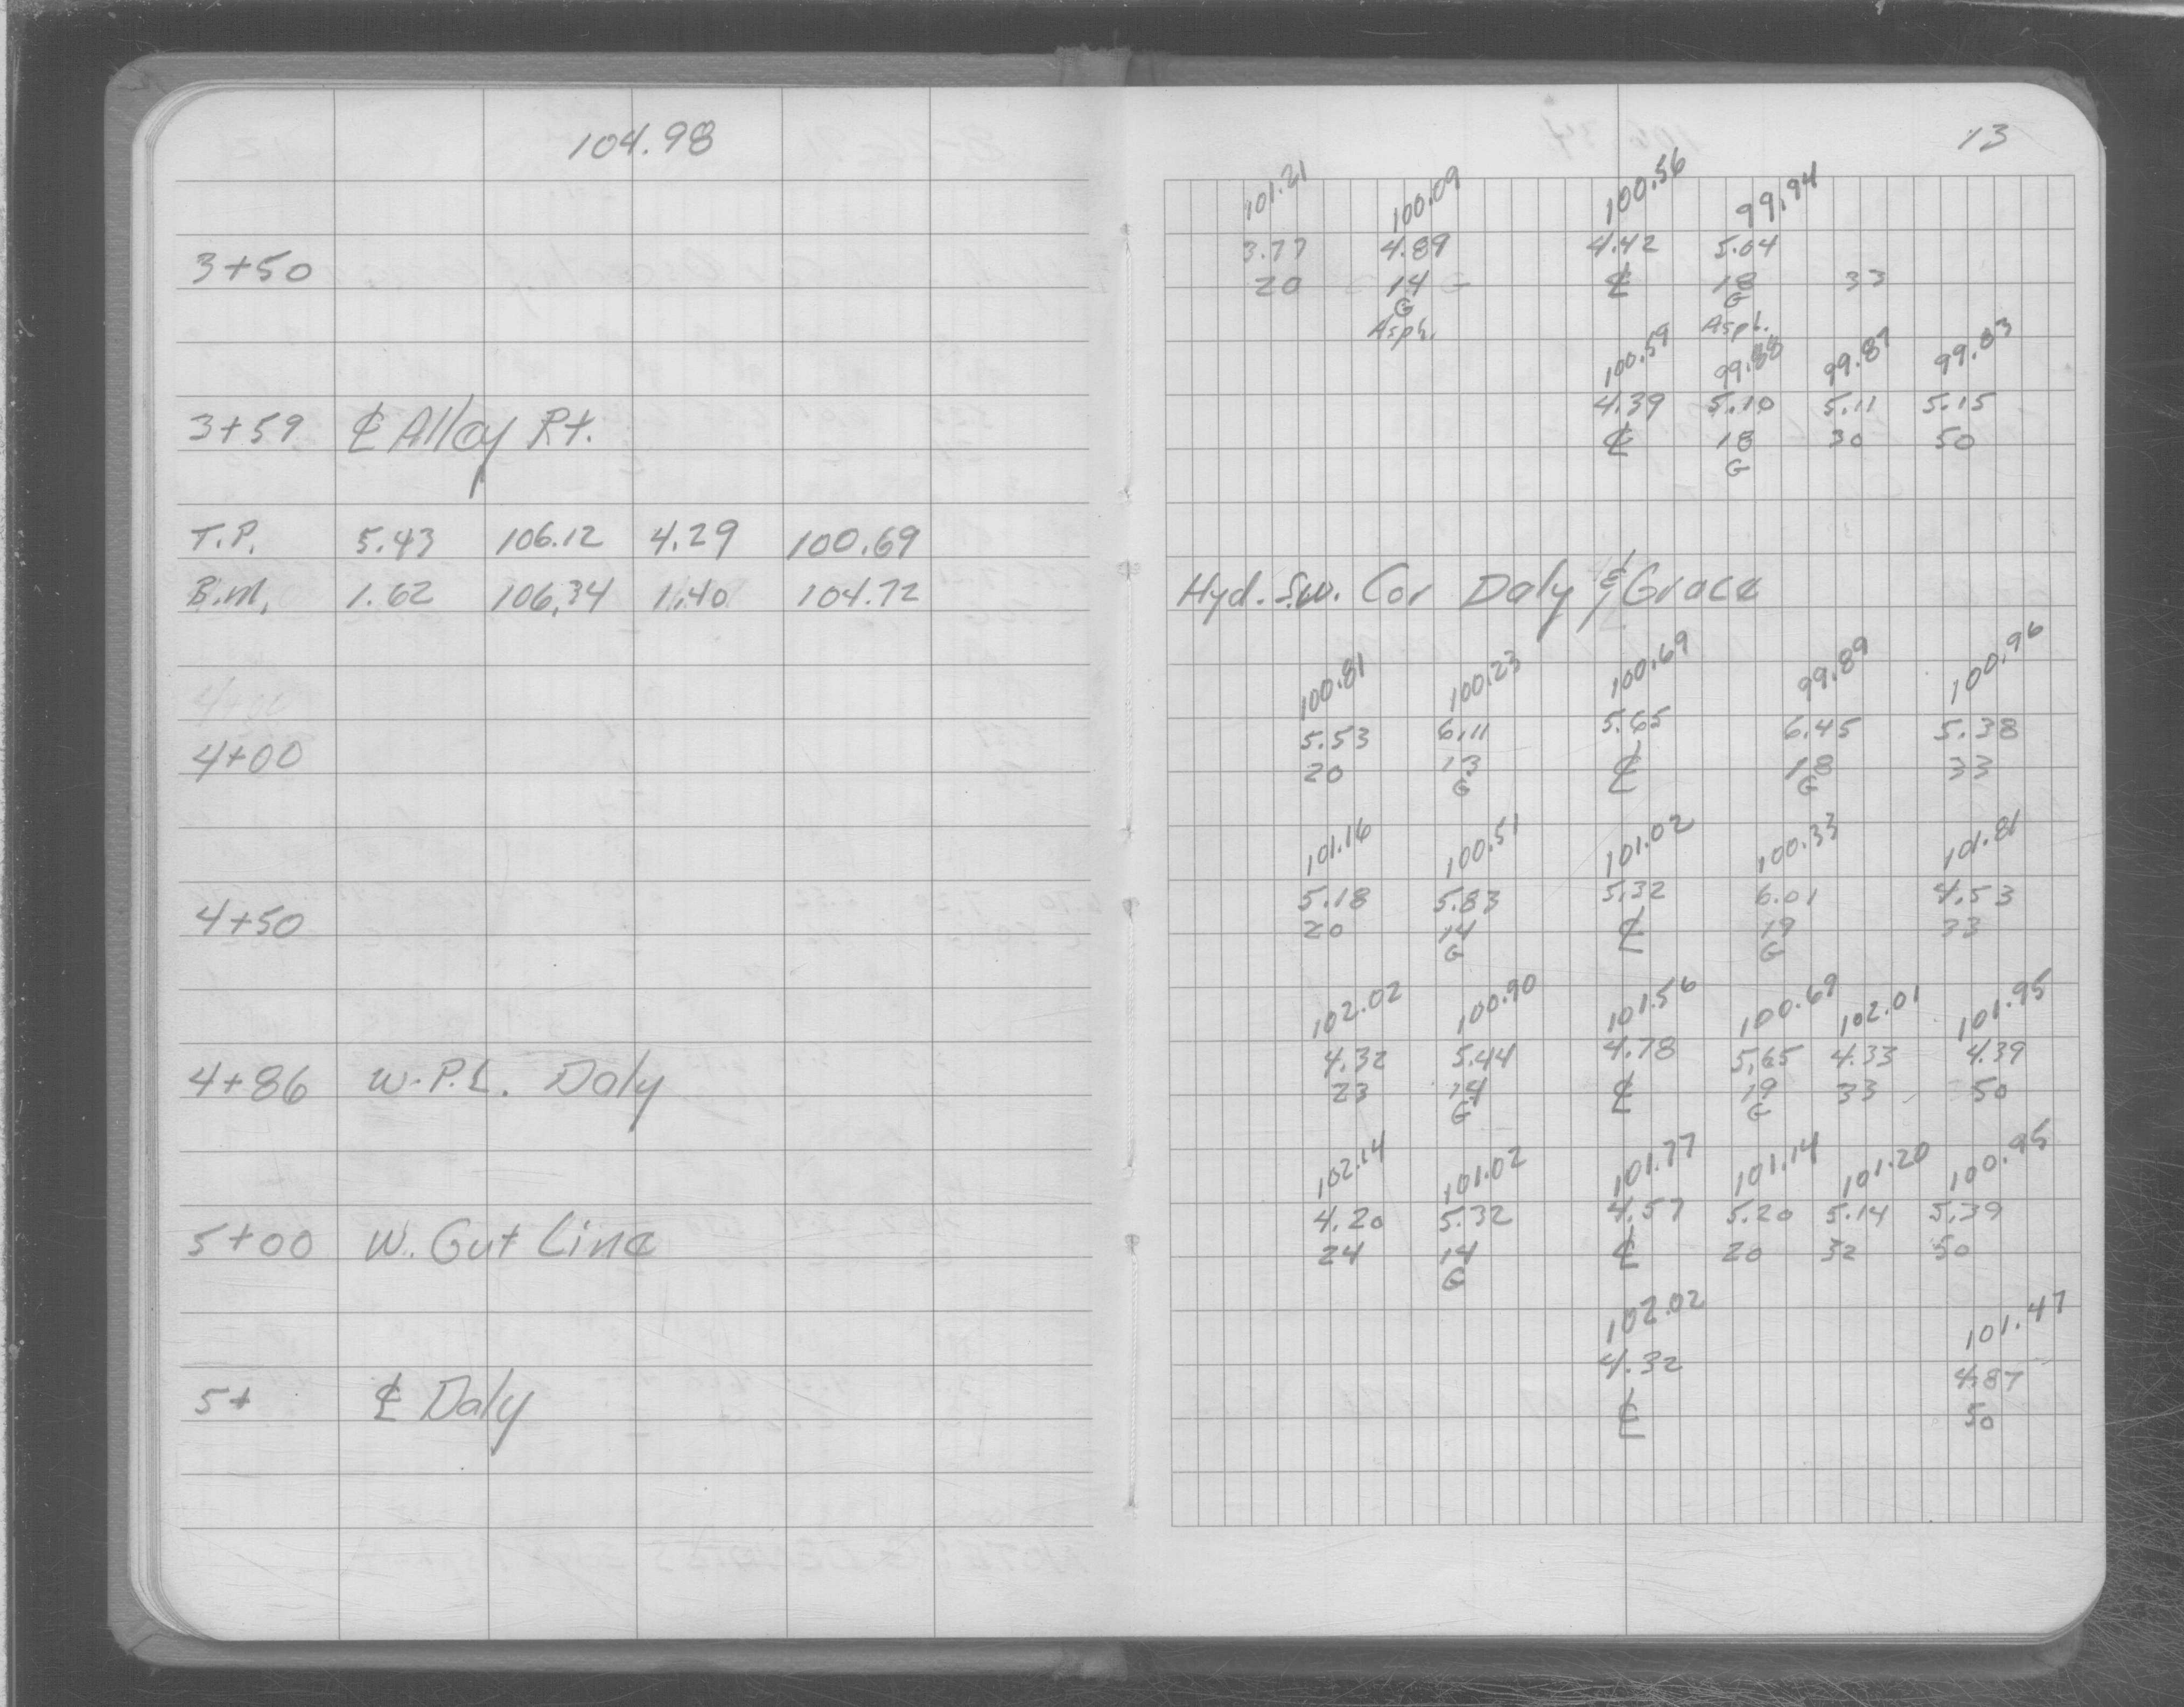 104.98
13
101.21 100.09 100.56 99.94
3.77 4.89 4.42 5.04
3+50 20 14 ℄ 18 33
G G
Asph. Asph.
100.59 99.88 99.87 99.83
4.39 5.10 5.11 5.15
3+59 ℄ Alley Rt. ℄ 18 30 50
G
T.P. 5.43 106.12 4.29 100.69
B.M. 1.62 106.34 1.40 104.72 Hyd. S.W. Cor Daly & Grace
100.81 100.23 100.69 99.89 100.96
5.53 6.11 5.65 6.45 5.38
4+00 20 13 ℄ 18 33
G G
101.16 100.51 101.02 100.33 101.81
5.18 5.83 5.32 6.01 4.53
4+50 20 14 ℄ 19 33
G G
102.02 100.90 101.56 100.69 102.01 101.95
4.32 5.44 4.78 5.65 4.33 4.39
4+86 W.P.L. Daly 23 14 ℄ 19 33 50
G G
102.14 101.02 101.77 101.14 101.20 100.95
4.20 5.32 4.57 5.20 5.14 5.39
5+00 W. Gut Line 24 14 ℄ 20 32 50
G
102.02 101.47
4.32 4.87
5+ ℄ Daly ℄ 50